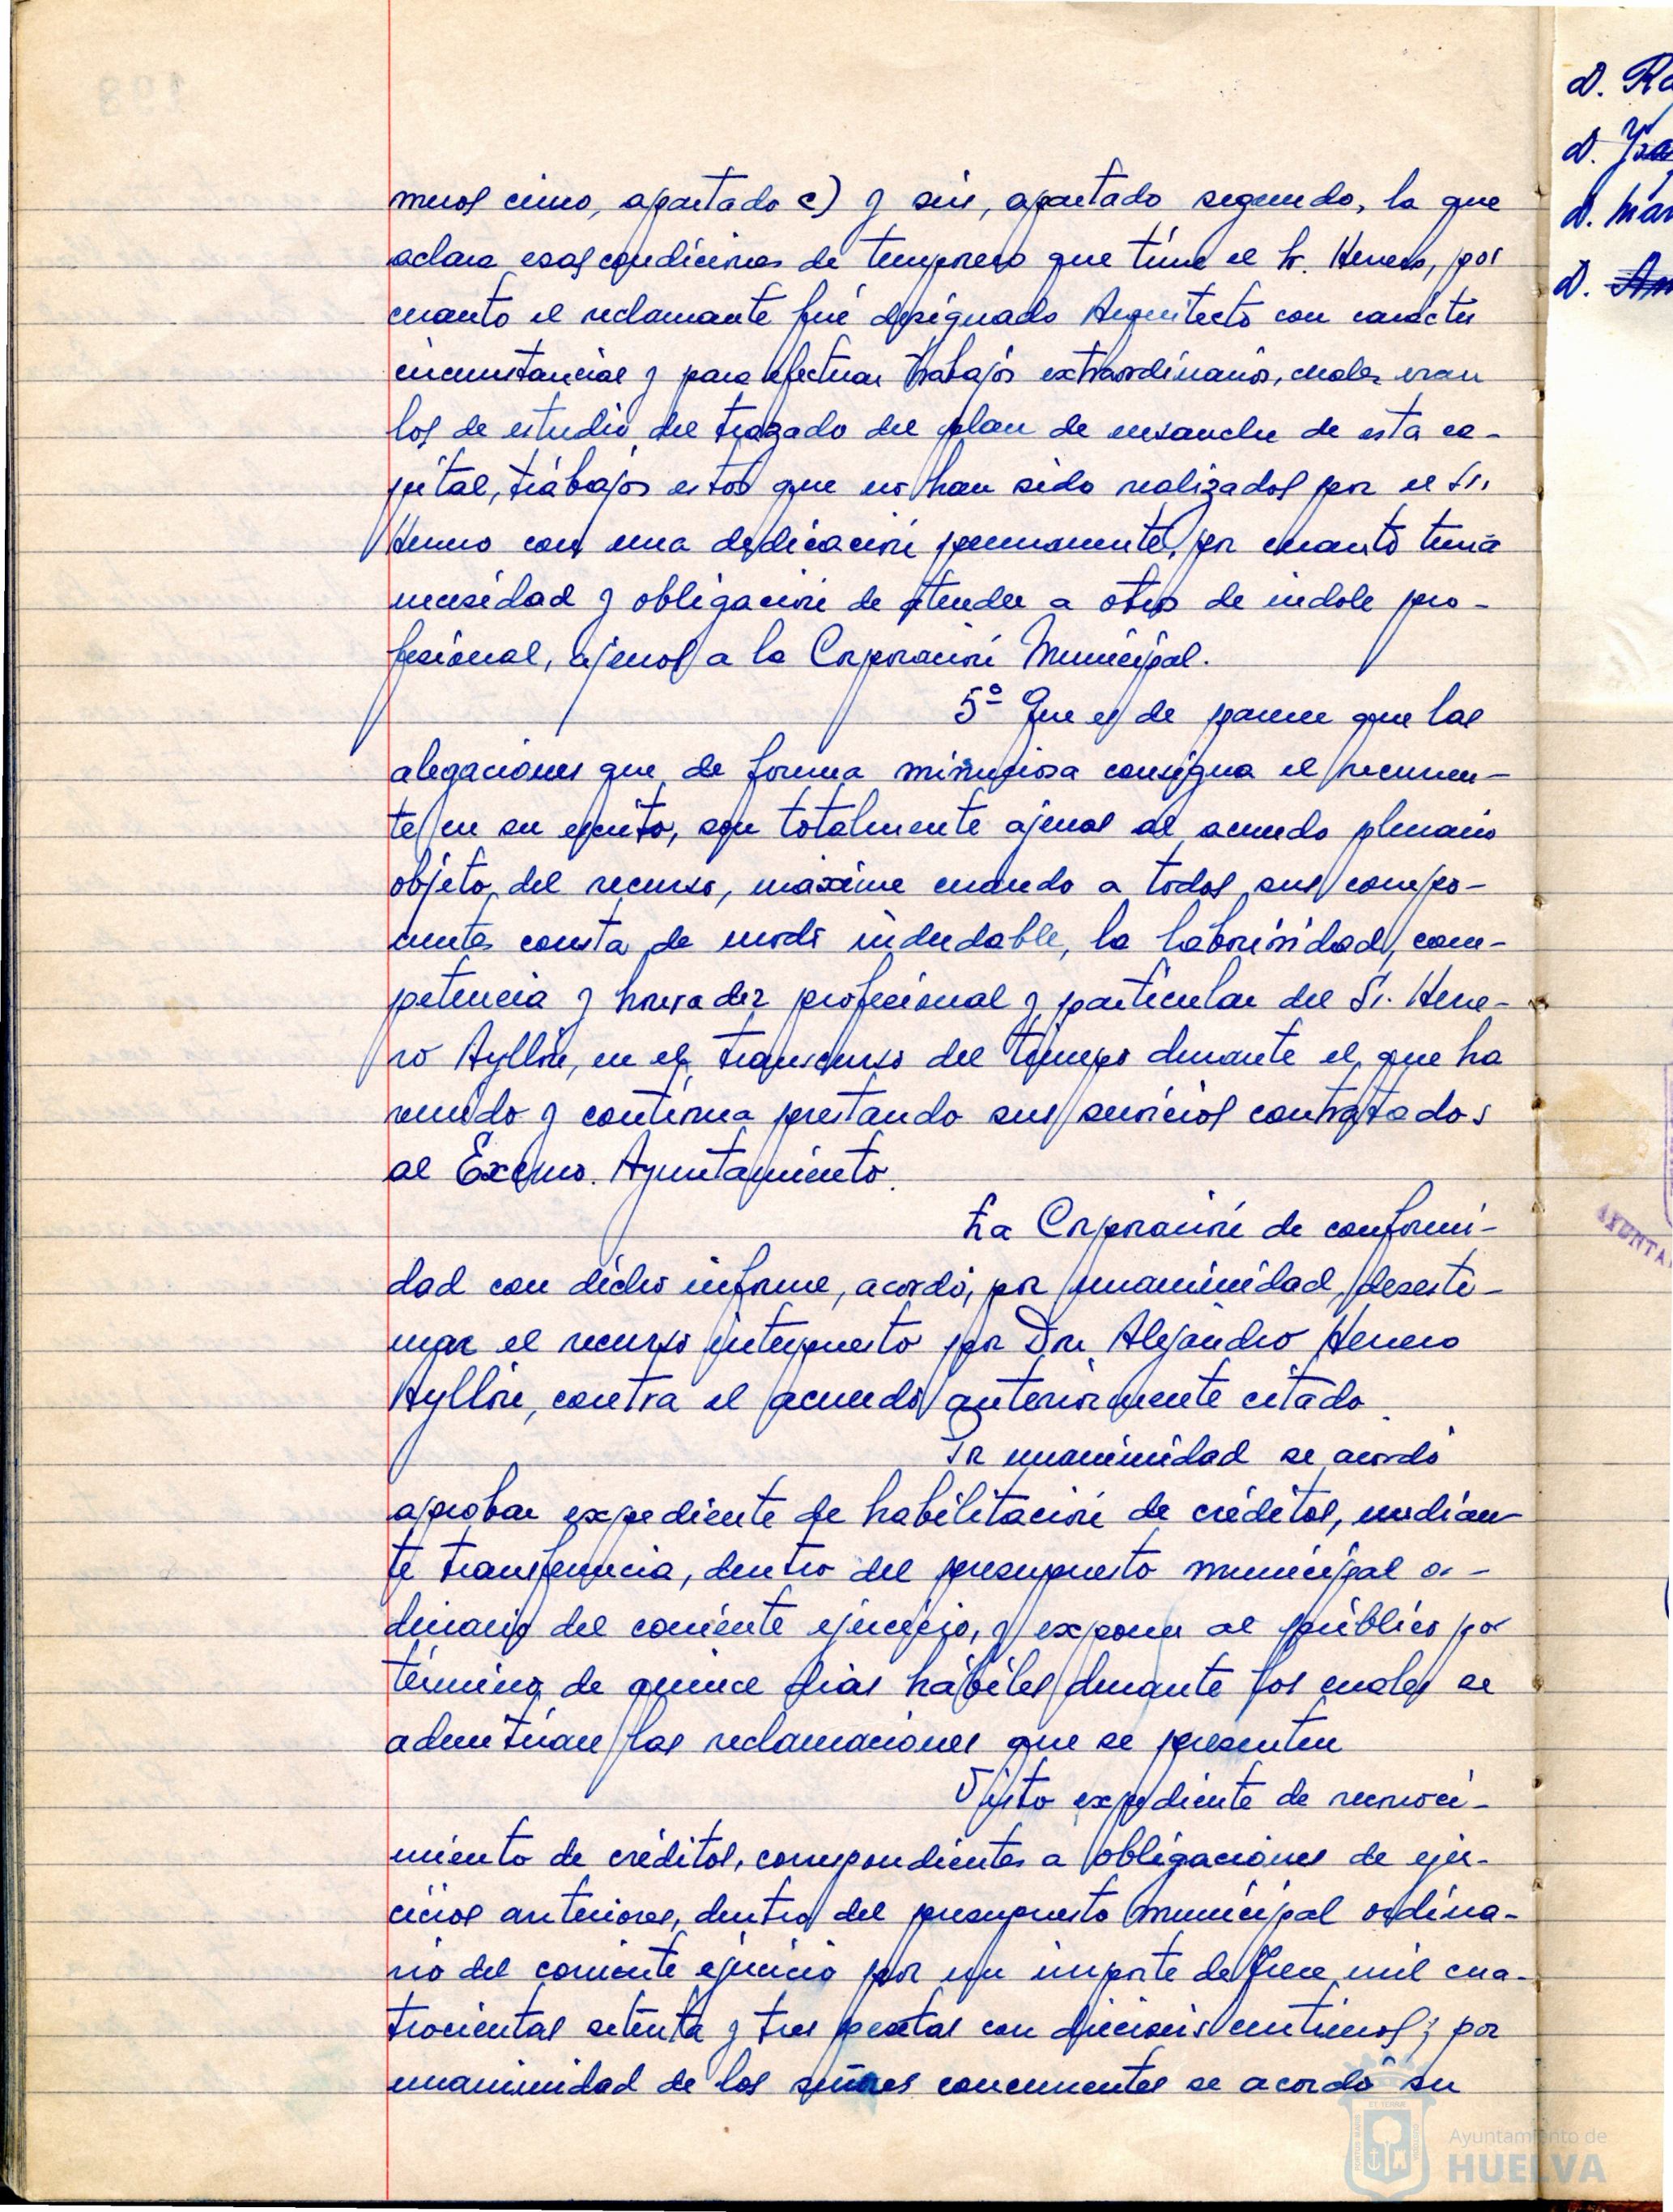 meros cinco, apartado c) y seis, apartado segundo, la que
aclara esas condiciones de temporero que tiene el Sr. Herrero, por
cuanto el reclamante fué designado Arquitecto con carácter
circunstancial y para efectuar trabajos extraordinarios, cuales eran
los de estudio del trazado del plan de ensanche de esta ca-
pital, trabajos estos que no han sido realizados por el Sr.
Herrero con una dedicación permanente, por cuanto tenía
necesidad y obligación de atender a otros de indole pro-
fesional, ajenos a la Corporación Municipal.
5º Que es de parecer que las
alegaciones que de forma minuciosa consigna el recurren-
te en su escrito, son totalmente ajenas al acuerdo plenario
objeto del recurso, máxime cuando a todos sus compo-
nentes consta de modo indudable, la laboriosidad, com-
petencia y honradez profesional y particular del Sr. Herre-
ro Ayllón, en el transcurso del tiempo durante el que ha
venido y continua prestando sus servicios contratados
al Excmo. Ayuntamiento.
La Corporación de conformi-
dad con dicho informe, acordó, por unanimidad, desesti-
mar el recurso interpuesto por Don Alejandro Herrero
Ayllón, contra el acuerdo anteriormente citado.
Por unanimidad se acordó
aprobar expediente de habilitación de créditos, median-
te transferencia, dentro del presupuesto municipal or-
dinario del corriente ejercicio, y exponer al público por
término de quince dias hábiles durante los cuales se
admitirían las reclamaciones que se presenten
Visto expediente de reconoci-
miento de créditos, correspondientes a obligaciones de ejer-
cicios anteriores, dentro del presupuesto municipal ordina-
rio del corriente ejercicio por un importe de trece mil cua-
trocientas setenta y tres pesetas con dieciseis centimos; por
unanimidad de los señores concurrentes se acordó su
D. Ra
D. Ysa
D. Man
D.
AYUNTA
Ayuntamiento de
HUELVA